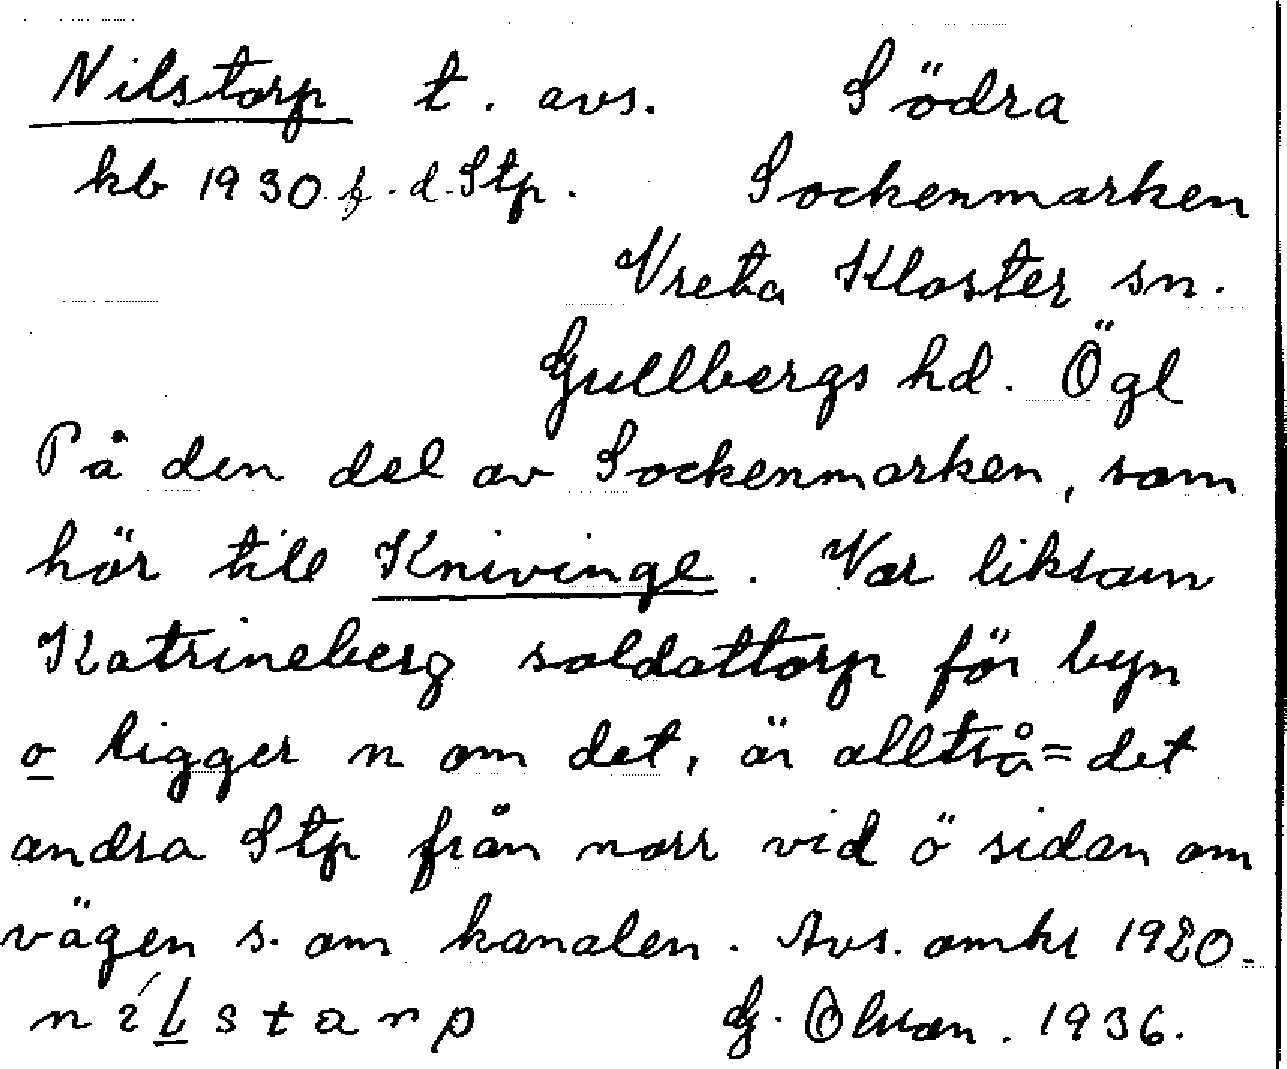 Nilstorp t. avs. Södra
kb 1930 f.d. Stp. Sockenmarken
Vreta Kloster sn.
Gullbergs hd. Ögl
På den del av Sockenmarken, som
hör till Knivinge. Var liksom
Katrineberg soldattorp för byn
o ligger n om det, är alltså = det
andra Stp från norr vid ö sidan om
vägen s. om kanalen. Avs. omkr 1920.
nílstarp G. Olson. 1936.